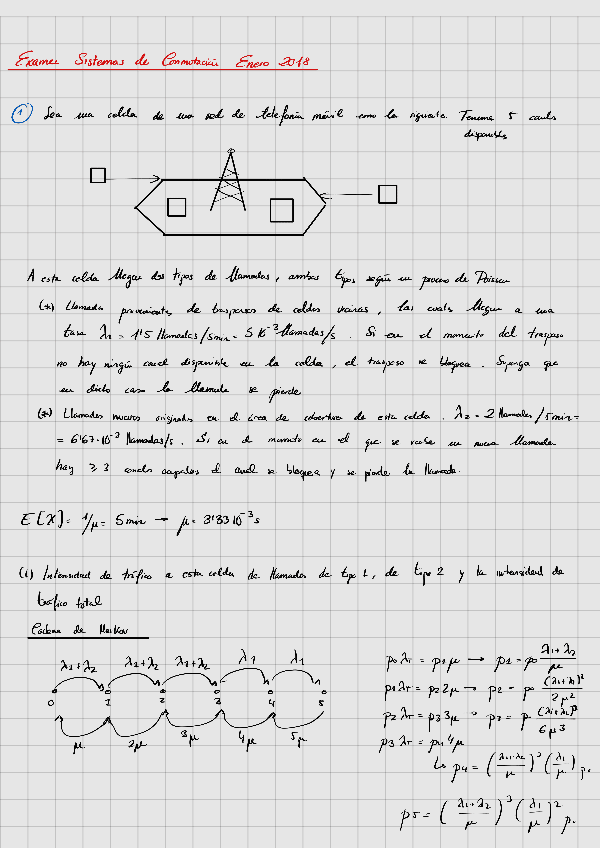 Examen Sistemas de Conmutación Enero 2018
1 Sea una celda de una red de telefonía móvil como la siguiente. Tenemos 5 canales
disponibles
A esta celda llegan dos tipos de llamadas, ambos tipos según un proceso de Poisson
(*) Llamadas provenientes de traspasos de celdas vecinas, las cuales llegan a una
tasa λ1 = 1'5 llamadas/5min = 5·10^-3 llamadas/s. Si en el momento del traspaso
no hay ningún canal disponible en la celda, el traspaso se bloquea. Suponga que
en dicho caso la llamada se pierde
(*) Llamadas nuevas originadas en el área de cobertura de esta celda. λ2 = 2 llamadas/5min =
= 6'67·10^-3 llamadas/s. Si en el momento en el que se recibe una nueva llamada
hay ≥ 3 canales ocupados el canal se bloquea y se pierde la llamada.
E[X] = 1/μ = 5min → μ = 3'33 10^-3 s
(i) Intensidad de tráfico a esta celda de llamadas de tipo 1, de tipo 2 y la intensidad de
tráfico total
Cadena de Markov
λ1+λ2 λ1+λ2 λ1+λ2 λ1 λ1
0 1 2 3 4 5
μ 2μ 3μ 4μ 5μ
p0 λT = p1 μ → p1 = p0 (λ1+λ2)/μ
p1 λT = p2 2μ → p2 = p0 (λ1+λ2)^2/2μ^2
p2 λT = p3 3μ p3 = p0 (λ1+λ2)^3/6μ^3
p3 λT = p4 4μ
p4 = ((λ1+λ2)/μ)^3 (λ1/μ) p0
p5 = ((λ1+λ2)/μ)^3 (λ1/μ)^2 p0